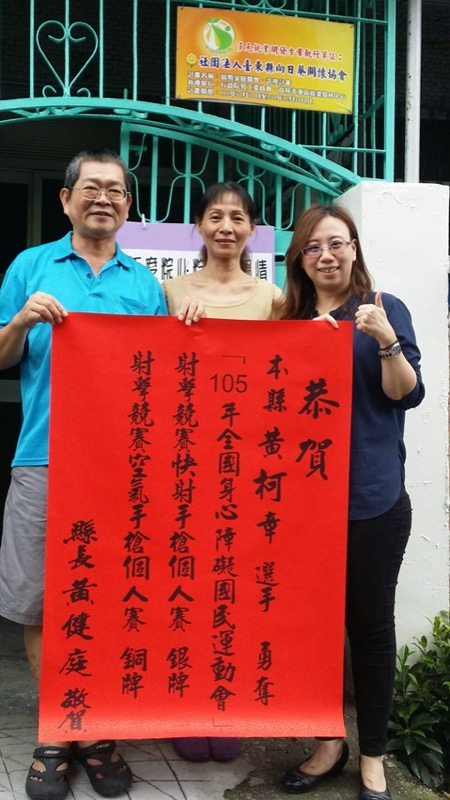 多元就業開發方案執行單位：
社團法人臺東縣向日葵關懷協會
恭賀
本縣黃柯章選手 勇奪
「105年全國身心障礙國民運動會」
射擊競賽快射手槍個人賽 銀牌
射擊競賽空氣手槍個人賽 銅牌
縣長黃健庭敬賀